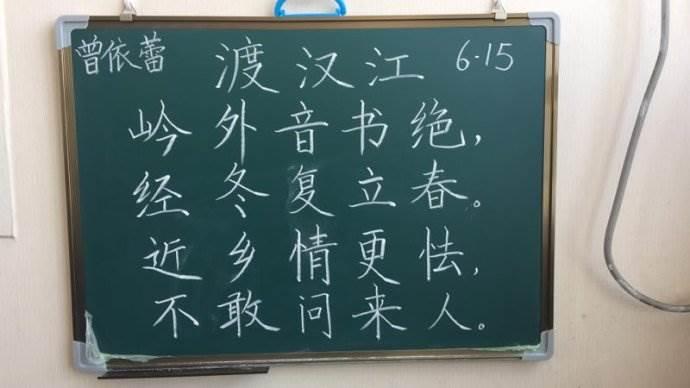 曾依蕾 渡汉江 6.15
岭外音书绝,
经冬复立春。
近乡情更怯,
不敢问来人。